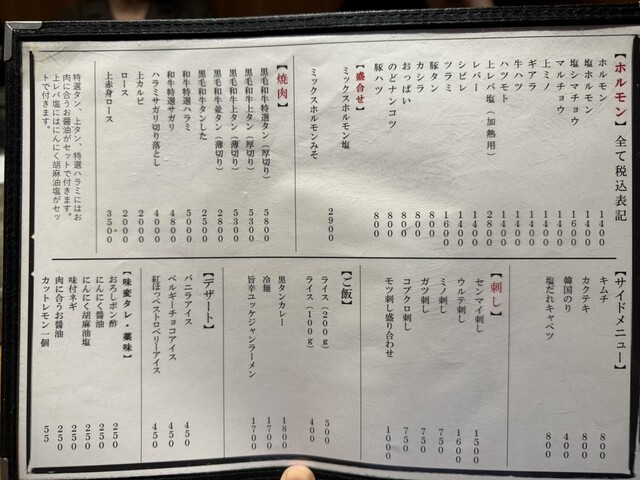 【ホルモン】全て税込表記
ホルモン 1400
塩ホルモン 1400
塩シマチョウ 1400
マルチョウ 1400
上ミノ 1600
ギアラ 1400
牛ハツ 1400
ハツモト 1200
上レバ塩(加熱用) 2000
レバー 1400
シビレ 1400
ツラミ 1600
豚タン 800
カシラ 800
おっぱい 800
のどナンコツ 800
豚ハツ 800
【盛合せ】
ミックスホルモン塩
ミックスホルモンみそ
2900
【焼肉】
黒毛和牛特選タン(厚切り) 5800
黒毛和牛上タン(厚切り) 5300
黒毛和牛上タン(薄切り) 5300
黒毛和牛並タン(薄切り) 2800
黒毛和牛タンした 2500
和牛特選ハラミ 5000
和牛特選サガリ 4800
ハラミサガリ切り落とし 4000
上カルビ 2000
ロース 2000
上赤身ロース 3500
特選タン、上タン、特選ハラミにはお
肉に合うお醤油がセットで付きます。
上レバ塩にはにんにく胡麻油塩がセッ
トで付きます。
【サイドメニュー】
キムチ 800
カクテキ 800
韓国のり 400
塩だれキャベツ 800
【刺し】
センマイ刺し 1500
ウルテ刺し 1600
ミノ刺し 750
ガツ刺し 750
コブクロ刺し 750
モツ刺し盛り合わせ 1000
【ご飯】
ライス(200g) 500
ライス(100g) 400
黒タンカレー 1800
冷麺 1700
旨辛ユッケジャンラーメン 1700
【デザート】
バニラアイス 450
ベルギーチョコアイス 450
紅ほっぺストロベリーアイス 450
【味変タレ・薬味】
おろしポン酢 250
にんにく醤油 250
にんにく胡麻油塩 250
味付ネギ 250
肉に合うお醤油 250
カットレモン一個 55